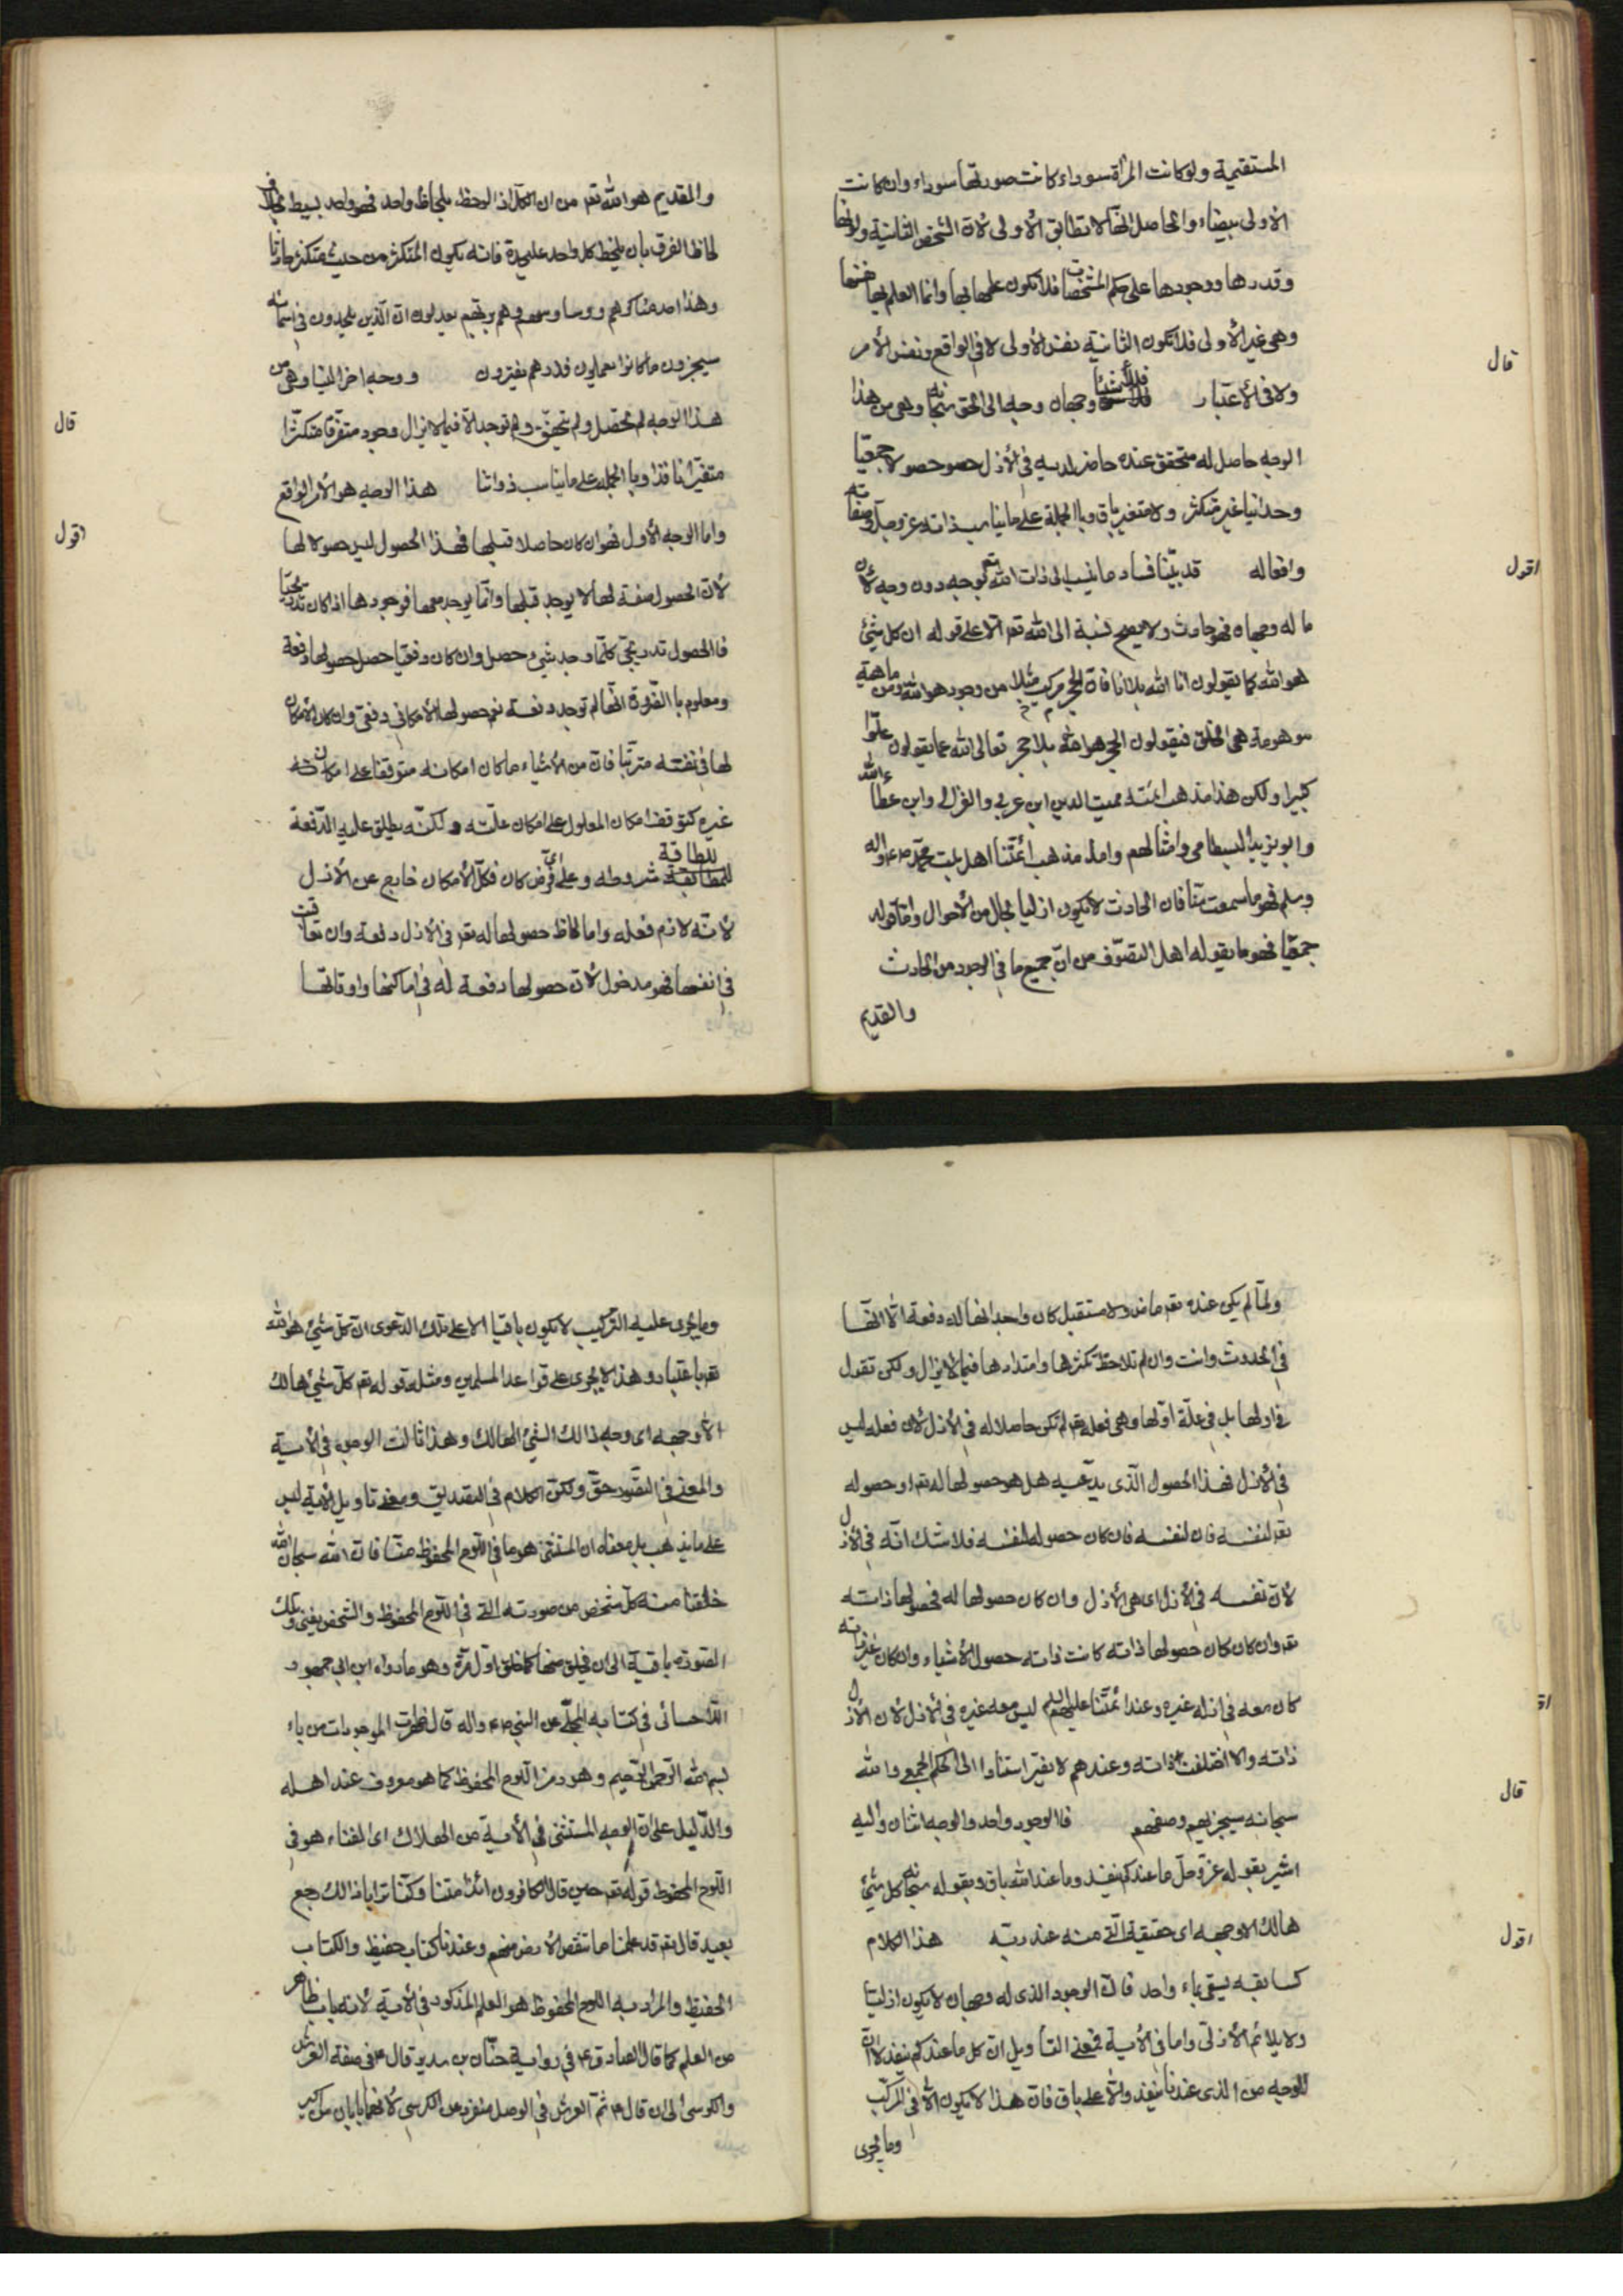 المستقيمة ولو كانت المرآة سوداء كانت صورتها سوداء وان كانت
الأولى بيضاء والحاصل انّها لا تطابق الأولى لأنّ الشخص الثانية ولونها
وقدرها ووجودها على حكم المشخصات فلا تكون علمها بها وانما العلم بها نفسها
وهى غير الأولى فلا تكون الثانية نفس الأولى لا في الواقع ونفس الأمر
قال
ولا في الأعتبار فللأشياء وجهان وجه الى الحق سبحانه وهى من هذا
الوجه حاصل له متحقق عنده حاضر لديه في الأزل حصو حصولا جمعيّا
وحدانيا غير متكثر ولا متغير باق وبالجملة على ما يناسب ذاته عز وجل وصفاته
اقول
وافعاله قد بيّنا فساد ما ينسب الى ذات الله تعم بوجه دون وجه لأن
ما له وجهان فهو حادث ولا يصح نسبة الى الله تعم الا على قوله ان كل شئ
هو الله كما يقولون انا الله بلا انا فان الحجر مركب مثلا من وجود هو الله ومن ماهية
موهومة هى الخلق فيقولون الحجر هو الله بلا حجر تعالى الله عما يقولون علوّا
كبيرا ولكن هذا مذهب ائمته مميت الدين ابن عربي والغزالى وابن عطاء الله
وابو يزيد البسطامى وامثالهم واما مذهب أئمتنا اهل بيت محمّد ص ع واله
وسلم فهو ما سمعت منّا فان الحادث لا يكون ازليا بحال من الأحوال وامّا قوله
جمعيّا فهو ما يقوله اهل التصوّف من انّ جميع ما في الوجود من الحادث
والقديم
والقديم هو الله تعم من ان الكل اذا لوحظ بلحاظ واحد فهو واحد بسيط بخلاف
لحاظ الفرق بان يلحظ كل واحد عليحدة فانه يكون المتكثر من حيث متكثر حادثا
وهذا احد مناكرهم ووساوسهم وهم بربّهم يعدلون ان الّذين يلحدون في اسمائه
سيجزون ما كانوا يعملون فذرهم يفترون ووجه اخر الينا وهى من
قال
هذا الوجه لم تحصل ولم تتحقق ولم توجد الّا فيما لا يزال وجود متفرّقا متكثّرا
متغيّرا نافذا وبالجملة على ما يناسب ذواتنا هذا الوجه هو الأمر الواقع
اقول
واما الوجه الأول فهو ان كان حاصلا قبلها فهذا الحصول ليس حصولا لها
لأن الحصول صفة لها لا يوجد قبلها وانّما يوجد معها فوجودها اذا كان تدريجيّا
فالحصول تدريجى كلّما وجد شئ حصل وان كان دفعيا حصل حصولها دفعة
ومعلوم بالضّرورة انّها لم توجد دفعة نعم حصولها الأمكانى دفعى وان كان الأمكان
لها في نفسه مترتّبا فان من الأشياء ما كان امكانه متوقفا على امكان
غيره كتوقف امكان المعلول على امكان علّته ولكنّه يطلق عليه الدّفعة
للطاقة شروطه وعلى اىّ فرض كان فكلّ الأمكان خارج عن الأزل
لأنّه لازم فعله واما لحاظ حصولها له تعم في الأزل دفعة وان تعاقبت
في انفسها فهو مدخول لأن حصولها دفعة له في اماكنها واوقاتها
ولمّا لم يكن عنده تعم ماض ولا مستقبل كان واحد انها له دفعة الّا انّها
في الحدوث وانت وان لم تلاحظ تكثرها وامتدادها فيما لا يزال ولكن تقول
في اولها بل في علّة اوّلها وهى فعله تعم لم تكن حاصلا له في الأزل لأن فعله ليس
في الأزل فهذا الحصول الّذى يدّعيه هل هو حصولها له تعم او حصوله
تعم لنفسه فان لنفسه فان كان حصوله لنفسه فلا شك انّه في الأزل
لأن نفسه في الأزل اى هى الأزل وان كان حصولها له فحصولها ذاته
تعم وان كان كان حصولها ذاته كانت ذاته حصول الأشياء وان كان غير ذاته
كان معه في ازله غيره وعند ائمّتنا عليهم السلم ليس معه غيره في الأزل لأن الأزل
ذاته والا اختلفت ذاته وعندهم لا يضر استنادا الى الحكم الجمعى والله
قال
سبحانه سيجزيهم وصفهم فالوجود واحد والوجه اثنان واليه
اشير بقوله عزّ وجلّ ما عندكم ينفد وما عند الله باق وبقوله سبحانه كل شئ
اقول
هالك الا وجهه اى حقيقة الّتى منه عند ربّه هذا الكلام
كسابقه يسقى بماء واحد فان الوجود الذى له وجهان لا يكون ازليّا
ولا يلائم الأزلى واما في الأية فمعنى التأويل ان كل ما عندكم ينفد لا ان
للوجه من الذى عندنا ينفد والأعلى باق فان هذا لا يكون الّا في المركّب
وما يجرى
وما يجرى عليه التركيب لا يكون باقيا الا على تلك الدّعوى ان كل شئ هو الله
تعم باعتبار وهذا لا يجرى على قواعد المسلمين ومثله قوله تعم كلّ شئ هالك
الّا وجهه اى وجه ذالك الشئ الهالك وهذا قالت الوجوه في الأية
والمعنى في التصّور حقّ ولكن الكلام في التصديق ومعنى تأويل الأية ليس
على ما يذهب بل معناه ان المستثنى هو ما في اللّوح المحفوظ منّا فان الله سبحان الله
خلقنا منه كلّ شخص من صورته الّتى في اللّوح المحفوظ والشخص يفنى وتلك
الصّورة باقية الى ان يخلق منها كما خلق اوّل مرّة وهو ما رواه ابن ابى جمهور
الأحسائى في كتابه المجلّى عن النبى ص ع واله قال ظهرت الموجودات من باء
بسم الله الرّحمن الرّحيم وهو رمز اللّوح المحفوظ كما هو معروف عند اهله
والدّليل على ان الوجه المستثنى في الأية من الهلاك اى الفناء هو في
اللّوح المحفوظ قوله تعم حين قال الكافرون ائذا متنا وكنّا ترابا ذالك رجع
بعيد قال تعم قد علمنا ما تنقص الأرض منهم وعندنا كتاب حفيظ والكتاب
الحفيظ والمراد به اللوح المحفوظ هو العلم المذكور في الأية لأنه باب ظاهر
من العلم كما قال الصادق ع في رواية حنّان بن سدير قال ع في صفة العرش
والكرسى الى ان قال ع ثمّ العرش في الوصل منفرد عن الكرسى لأنهما بابان من اكبر